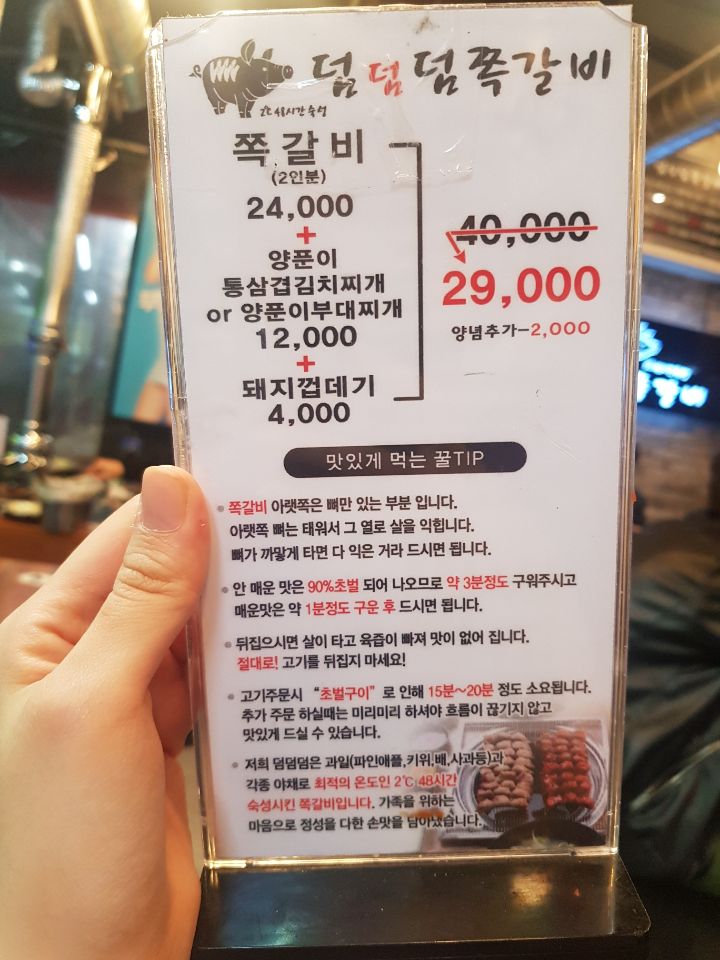 덤덤덤쪽갈비
48시간 숙성
쪽갈비
(2인분)
24,000
+
양푼이
통삼겹김치찌개
or 양푼이부대찌개
12,000
+
돼지껍데기
4,000
40,000
29,000
양념추가-2,000
맛있게 먹는 꿀TIP
쪽갈비 아랫쪽은 뼈만 있는 부분 입니다.
아랫쪽 뼈는 태워서 그 열로 살을 익힙니다.
뼈가 까맣게 타면 다 익은 거라 드시면 됩니다.
안 매운 맛은 90%초벌 되어 나오므로 약 3분정도 구워주시고
매운맛은 약 1분정도 구운 후 드시면 됩니다.
뒤집으시면 살이 타고 육즙이 빠져 맛이 없어 집니다.
절대로! 고기를 뒤집지 마세요!
고기주문시 “초벌구이”로 인해 15분~20분 정도 소요됩니다.
추가 주문 하실때는 미리미리 하셔야 흐름이 끊기지 않고
맛있게 드실 수 있습니다.
저희 덤덤덤은 과일(파인애플,키위,배,사과등)과
각종 야채로 최적의 온도인 2℃ 48시간
숙성시킨 쪽갈비입니다. 가족을 위하는
마음으로 정성을 다한 손맛을 담아냈습니다.
갈비